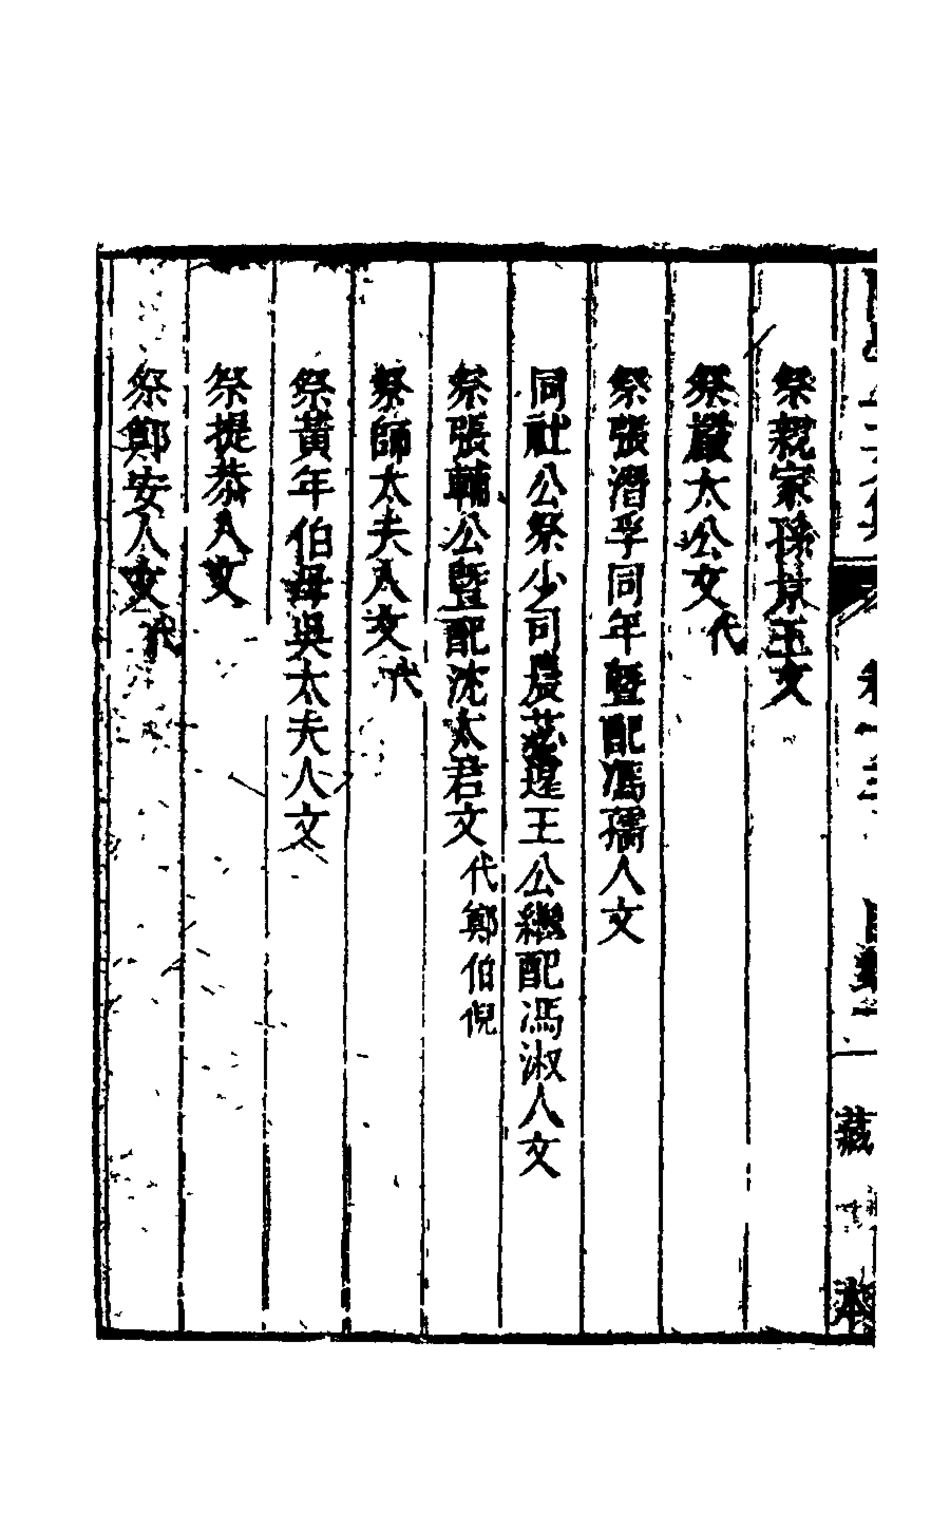 祭親家孫京玉文
祭嚴太公文代
祭張潛孚同年暨配馮孺人文
同社公祭少司農蕋蓬王公繼配馮淑人文
祭張輔公暨配沈太君文代鄭伯倪
祭師太夫人文代
祭黃年伯母吳太夫人文
祭提恭人文
祭鄭安人文代
藏
本